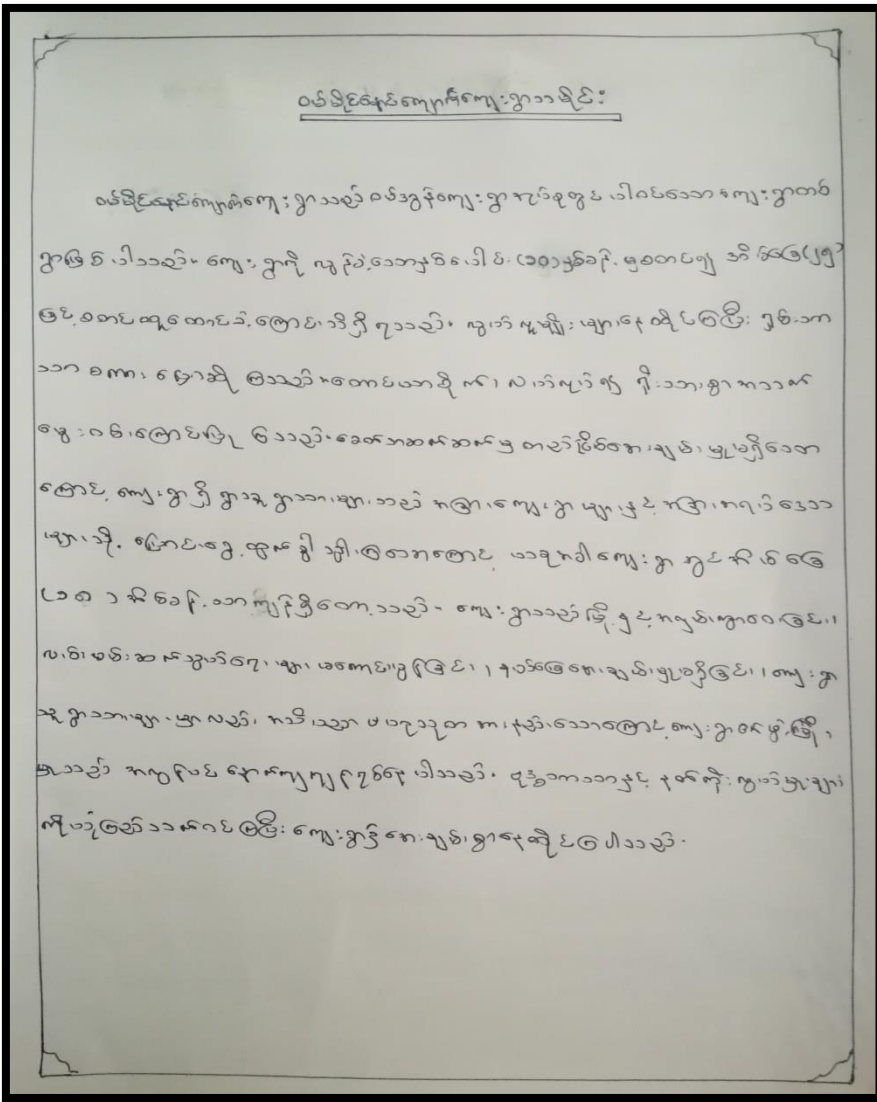 ကျေးရွာသမိုင်း
ကျေးရွာသည် ဝမ်ဒွန်ကျေးရွာအုပ်စုတွင် ပါဝင်သော ကျေးရွာတစ်
ရွာဖြစ်ပါသည်။ ကျေးရွာကို လွန်ခဲ့သောနှစ်ပေါင်း (၁၀၁)နှစ်ခန့်မှစတင်၍ အိမ်ခြေ(၂၅)
ဖြင့် စတင်ထူထောင်ခဲ့ကြောင်း သိရှိရသည်။ လွယ်လူမျိုးများနေထိုင်ကြပြီး ရှမ်းဘာ
သာစကားပြောဆိုကြသည်။ တောင်ယာစိုက်၊ လယ်လုပ်၍ ရိုးသားစွာအသက်
မွေးဝမ်းကြောင်းပြုကြသည်။ ခေတ်အဆက်ဆက်မှ တည်ငြိမ်အေးချမ်းမှုမရှိသော
ကြောင့် ကျေးရွာရှိ ရွာသူရွာသားများသည် အခြားကျေးရွာများနှင့် အခြားအရပ်ဒေသ
များသို့ ပြောင်းရွှေ့ထွက်ခွါသွါးကြသောကြောင့် ယခုအခါကျေးရွာတွင် အိမ်ခြေ
(၁၈) အိမ်ခန့်သာကျန်ရှိတော့သည်။ ကျေးရွာသည်မြို့နှင့်အလှမ်းကွာဝေးခြင်း၊
လမ်းပမ်းဆက်သွယ်ရေးများ မကောင်းမွန်ခြင်း၊ နယ်မြေအေးချမ်းမှုမရှိခြင်း၊ ကျေးရွာ
သူရွာသားများမှာလည်း အသိပညာ ဗဟုသုတ အားနည်းသောကြောင့် ကျေးရွာဖွံ့ဖြိုး
မှုသည် အလွန်ပင် နောက်ကျကျန်ရစ်နေပါသည်။ ဗုဒ္ဓဘာသာနှင့် နတ်ကိုးကွယ်မှုများ
ကိုယုံကြည်သက်ဝင်ကြပြီး ကျေးရွာ၌အေးချမ်းစွာနေထိုင်ကြပါသည်။